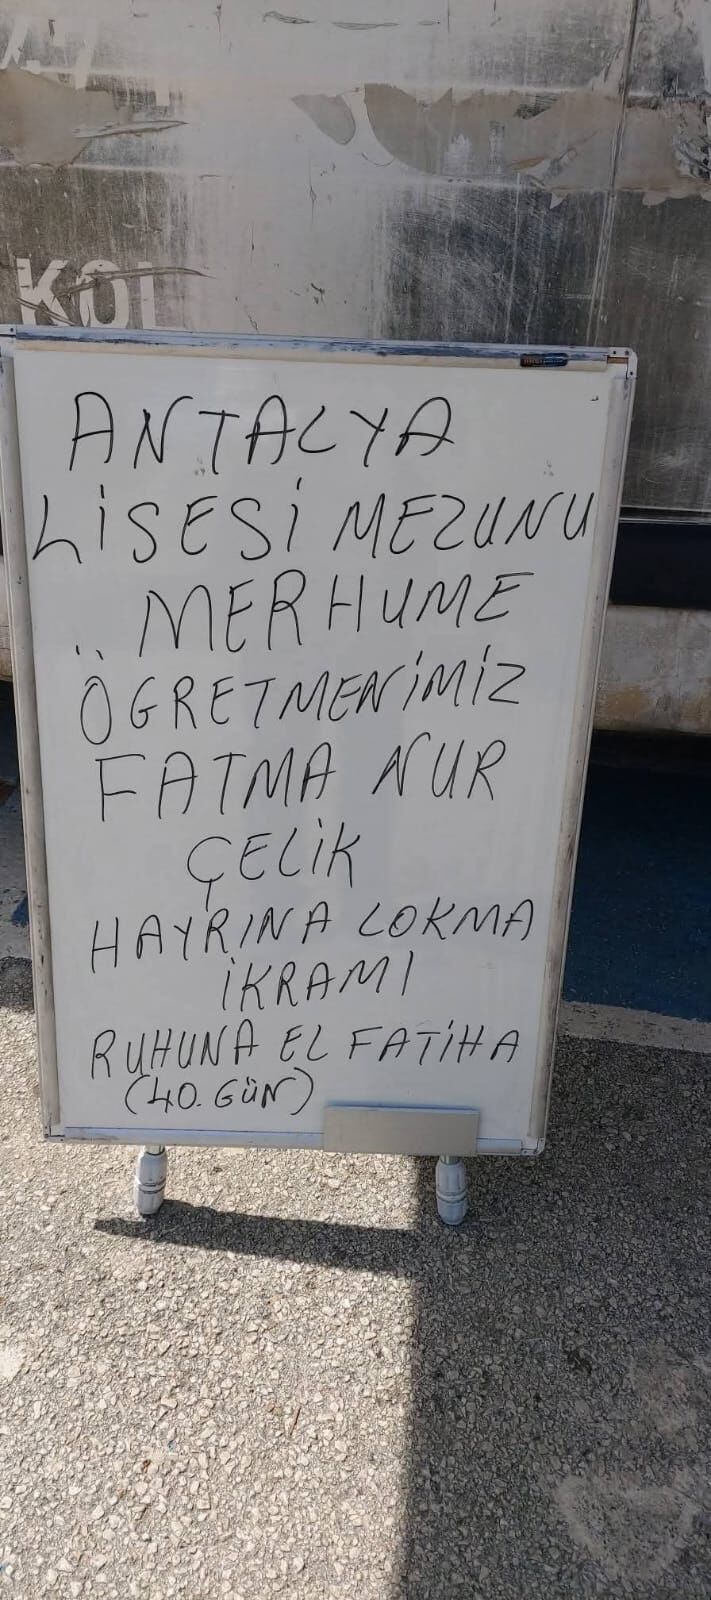 KOL
ANTALYA
LİSESİ MEZUNU
MERHUME
ÖGRETMENİMİZ
FATMA NUR
ÇELİK
HAYRINA LOKMA
İKRAMI
RUHUNA EL FATİHA
(40. GÜN)